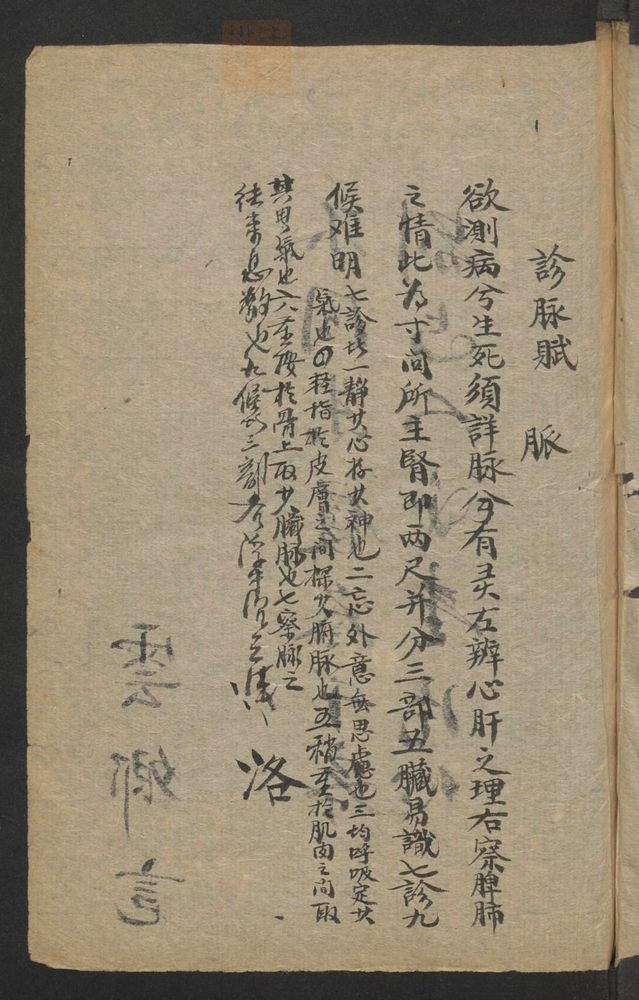 診脉賦
脈
欲測病兮生死須詳脉兮有灵左辨心肝之理右察脾肺
之情此为寸関所主腎即两尺并分三部五臓易識七診九
候难明七診者一靜其心存其神也二忘外意無思慮也三均呼吸定其
氣也四轻指於皮膚之间探其腑脉也五稍重於肌肉之间取
其胃氣也六重按於骨上取其臓脉也七察脉之
往来息数也九候者三部各浮中沉
洛
雲卿記